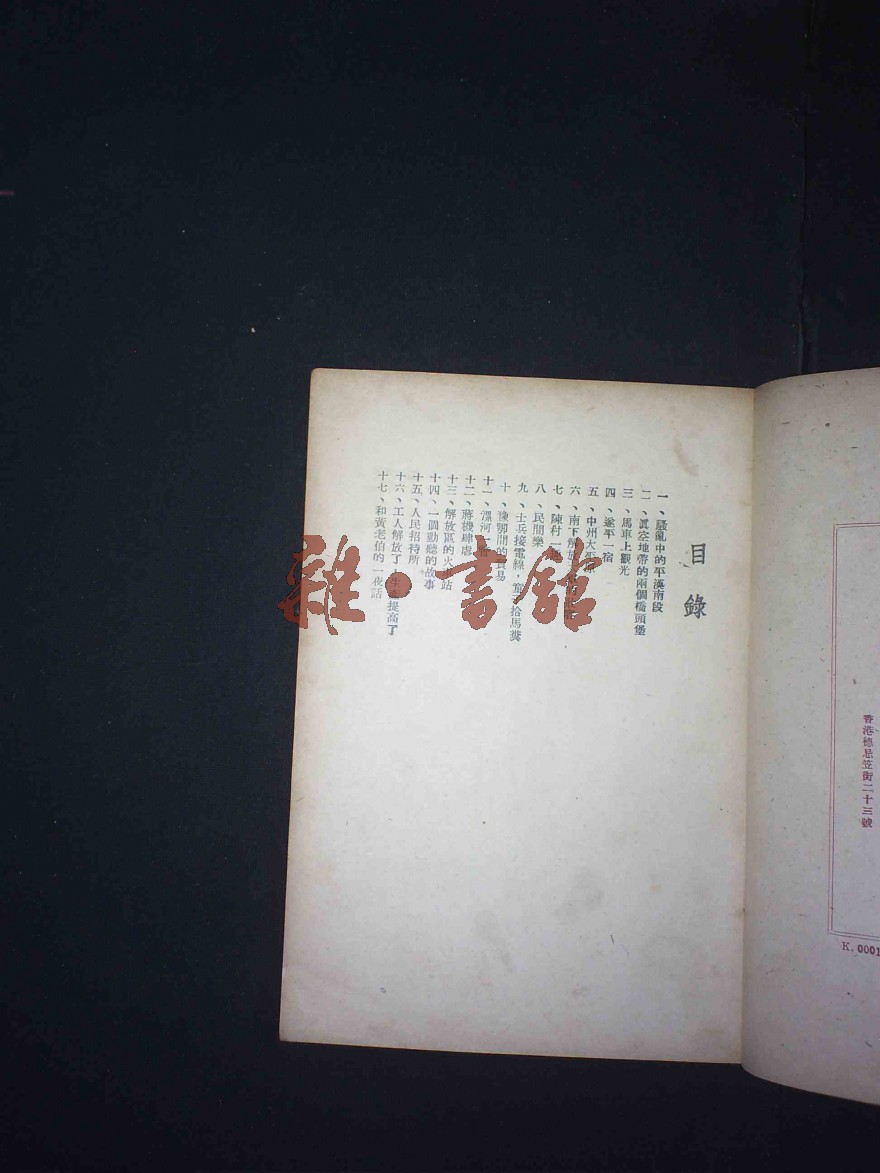 目錄
一、騷亂中的平漢南段
二、眞空地帶的兩個橋頭堡
三、馬車上觀光
四、遂平一宿
五、中州大平原
六、南下解放
七、陳村一
八、民間樂
九、士兵接電綫，童子拾馬糞
十、豫鄂間的貿易
十一、漯河一
十二、蔣機肆虐
十三、解放區的火車站
十四、一個動聽的故事
十五、人民招待所
十六、工人解放了，生產提高了
十七、和黃老伯的一夜話
香港德忌笠街二十三號
K. 0001
雜·書館